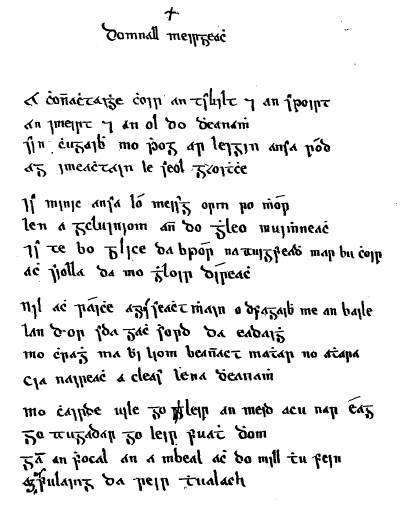 ✝
Domnall meirgeaċ
A ċonaċtaiġe ċoir an tsuilt ⁊ an spoirt
an imeirt ⁊ an ol do ḋeanaṁ
sin ċugaiḃ mo ṗog ar leigin ansa ród
ag imeaċtain le seol
Is minic ansa ló meisg orm ro ṁór
le n a gcluiniom ann do ġleo muirnneaċ
Is te bo glice da brór na tuigfeaḋ mar bu ċoir
aċ siolla da mo ġloir díreaċ
Nil aċ ráiċe agus seaċt ṁain o dfagaiḃ me an baile
lan d-or sda gaċ sord da eadaiġ
mo ċraġ ma ḃi liom beanact matar no atara
cia naireaċ a cleas lena ḋeanaṁ
mo ċairde uile go leir an meid acu nar éag
go ttugadar go leir fuaṫ ḋom
an focal an a mbeal aċ do mill ṫu fein
fulaing da reir ṫualach